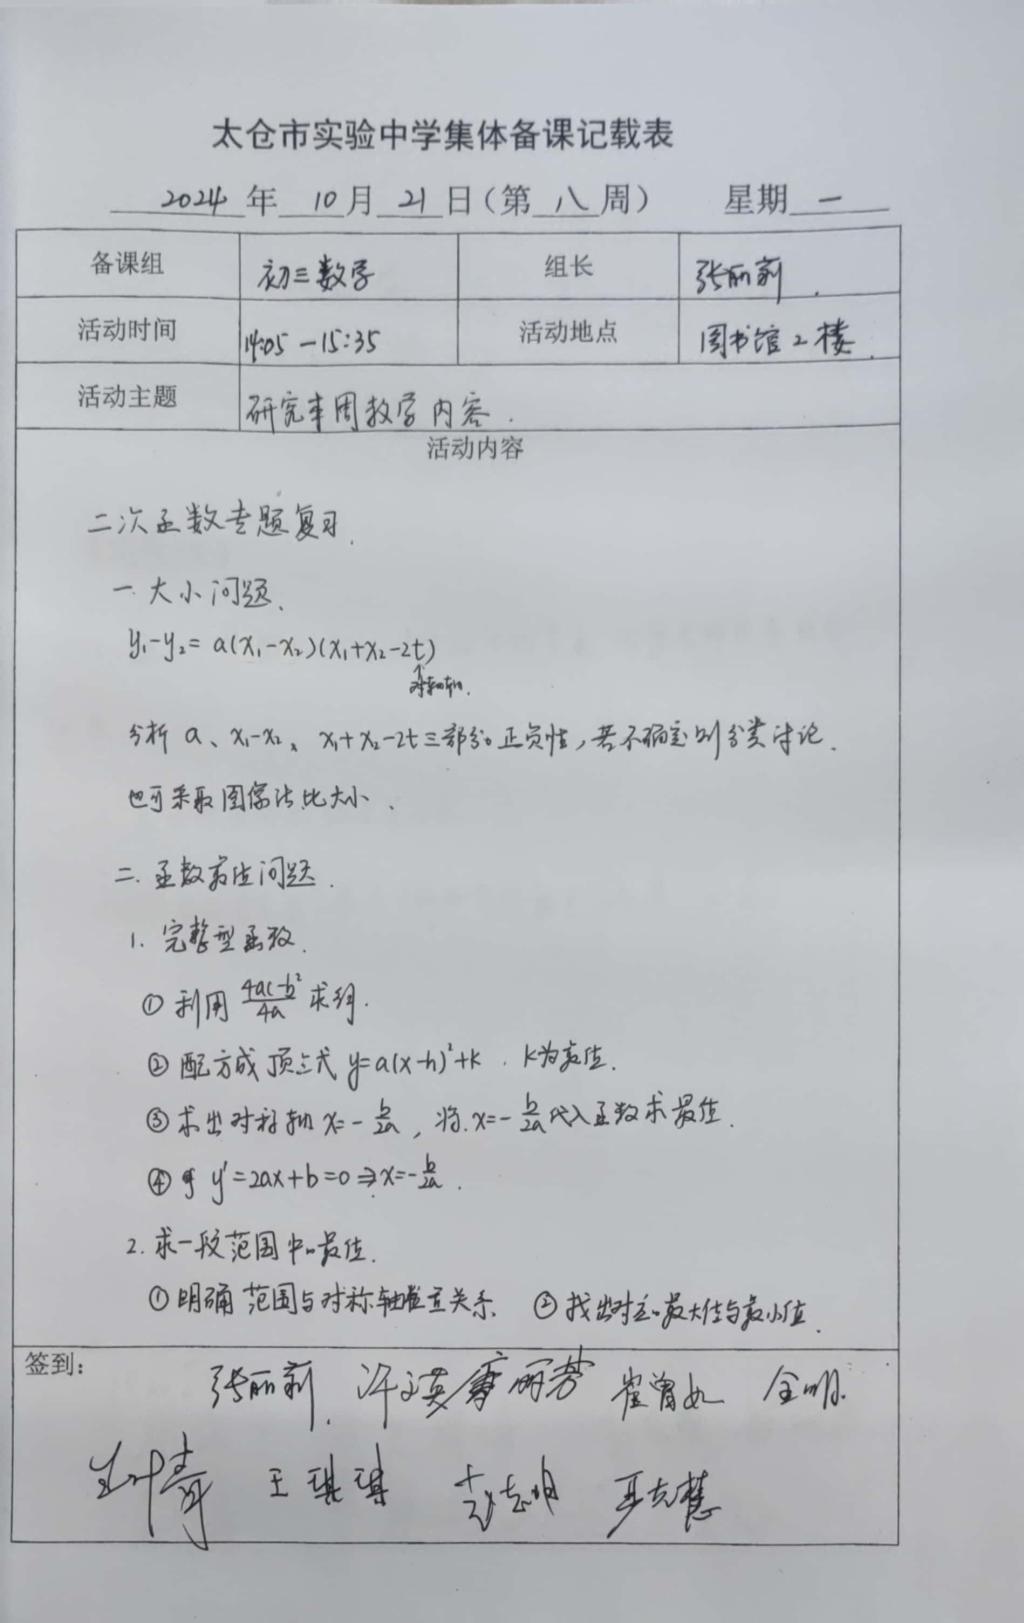 太仓市实验中学集体备课记载表
2024 年 10 月 21 日（第 八 周） 星期 一
备课组 初三数学 组长 张丽莉
活动时间 14:05 — 15:35 活动地点 图书馆2楼.
活动主题 研究本周教学内容.
活动内容
二次函数专题复习.
一. 大小问题.
y₁-y₂= a(x₁-x₂)(x₁+x₂-2t)
↑对称轴.
分析 a、x₁-x₂、x₁+x₂-2t三部分的正负性，若不确定则分类讨论.
也可采取图像法比大小.
二. 函数最值问题.
1. 完整型函数.
① 利用 (4ac-b²)/4a 求得.
② 配方成顶点式 y=a(x-h)²+k . k为最值.
③ 求出对称轴 x=-b/2a，将x=-b/2a代入函数求最值.
④ y'=2ax+b=0⇒x=-b/2a.
2. 求一段范围中的最值.
① 明确范围与对称轴位置关系. ② 找出对应的最大值与最小值.
签到：
张丽莉. 许文英 崔曾如
王琪琪